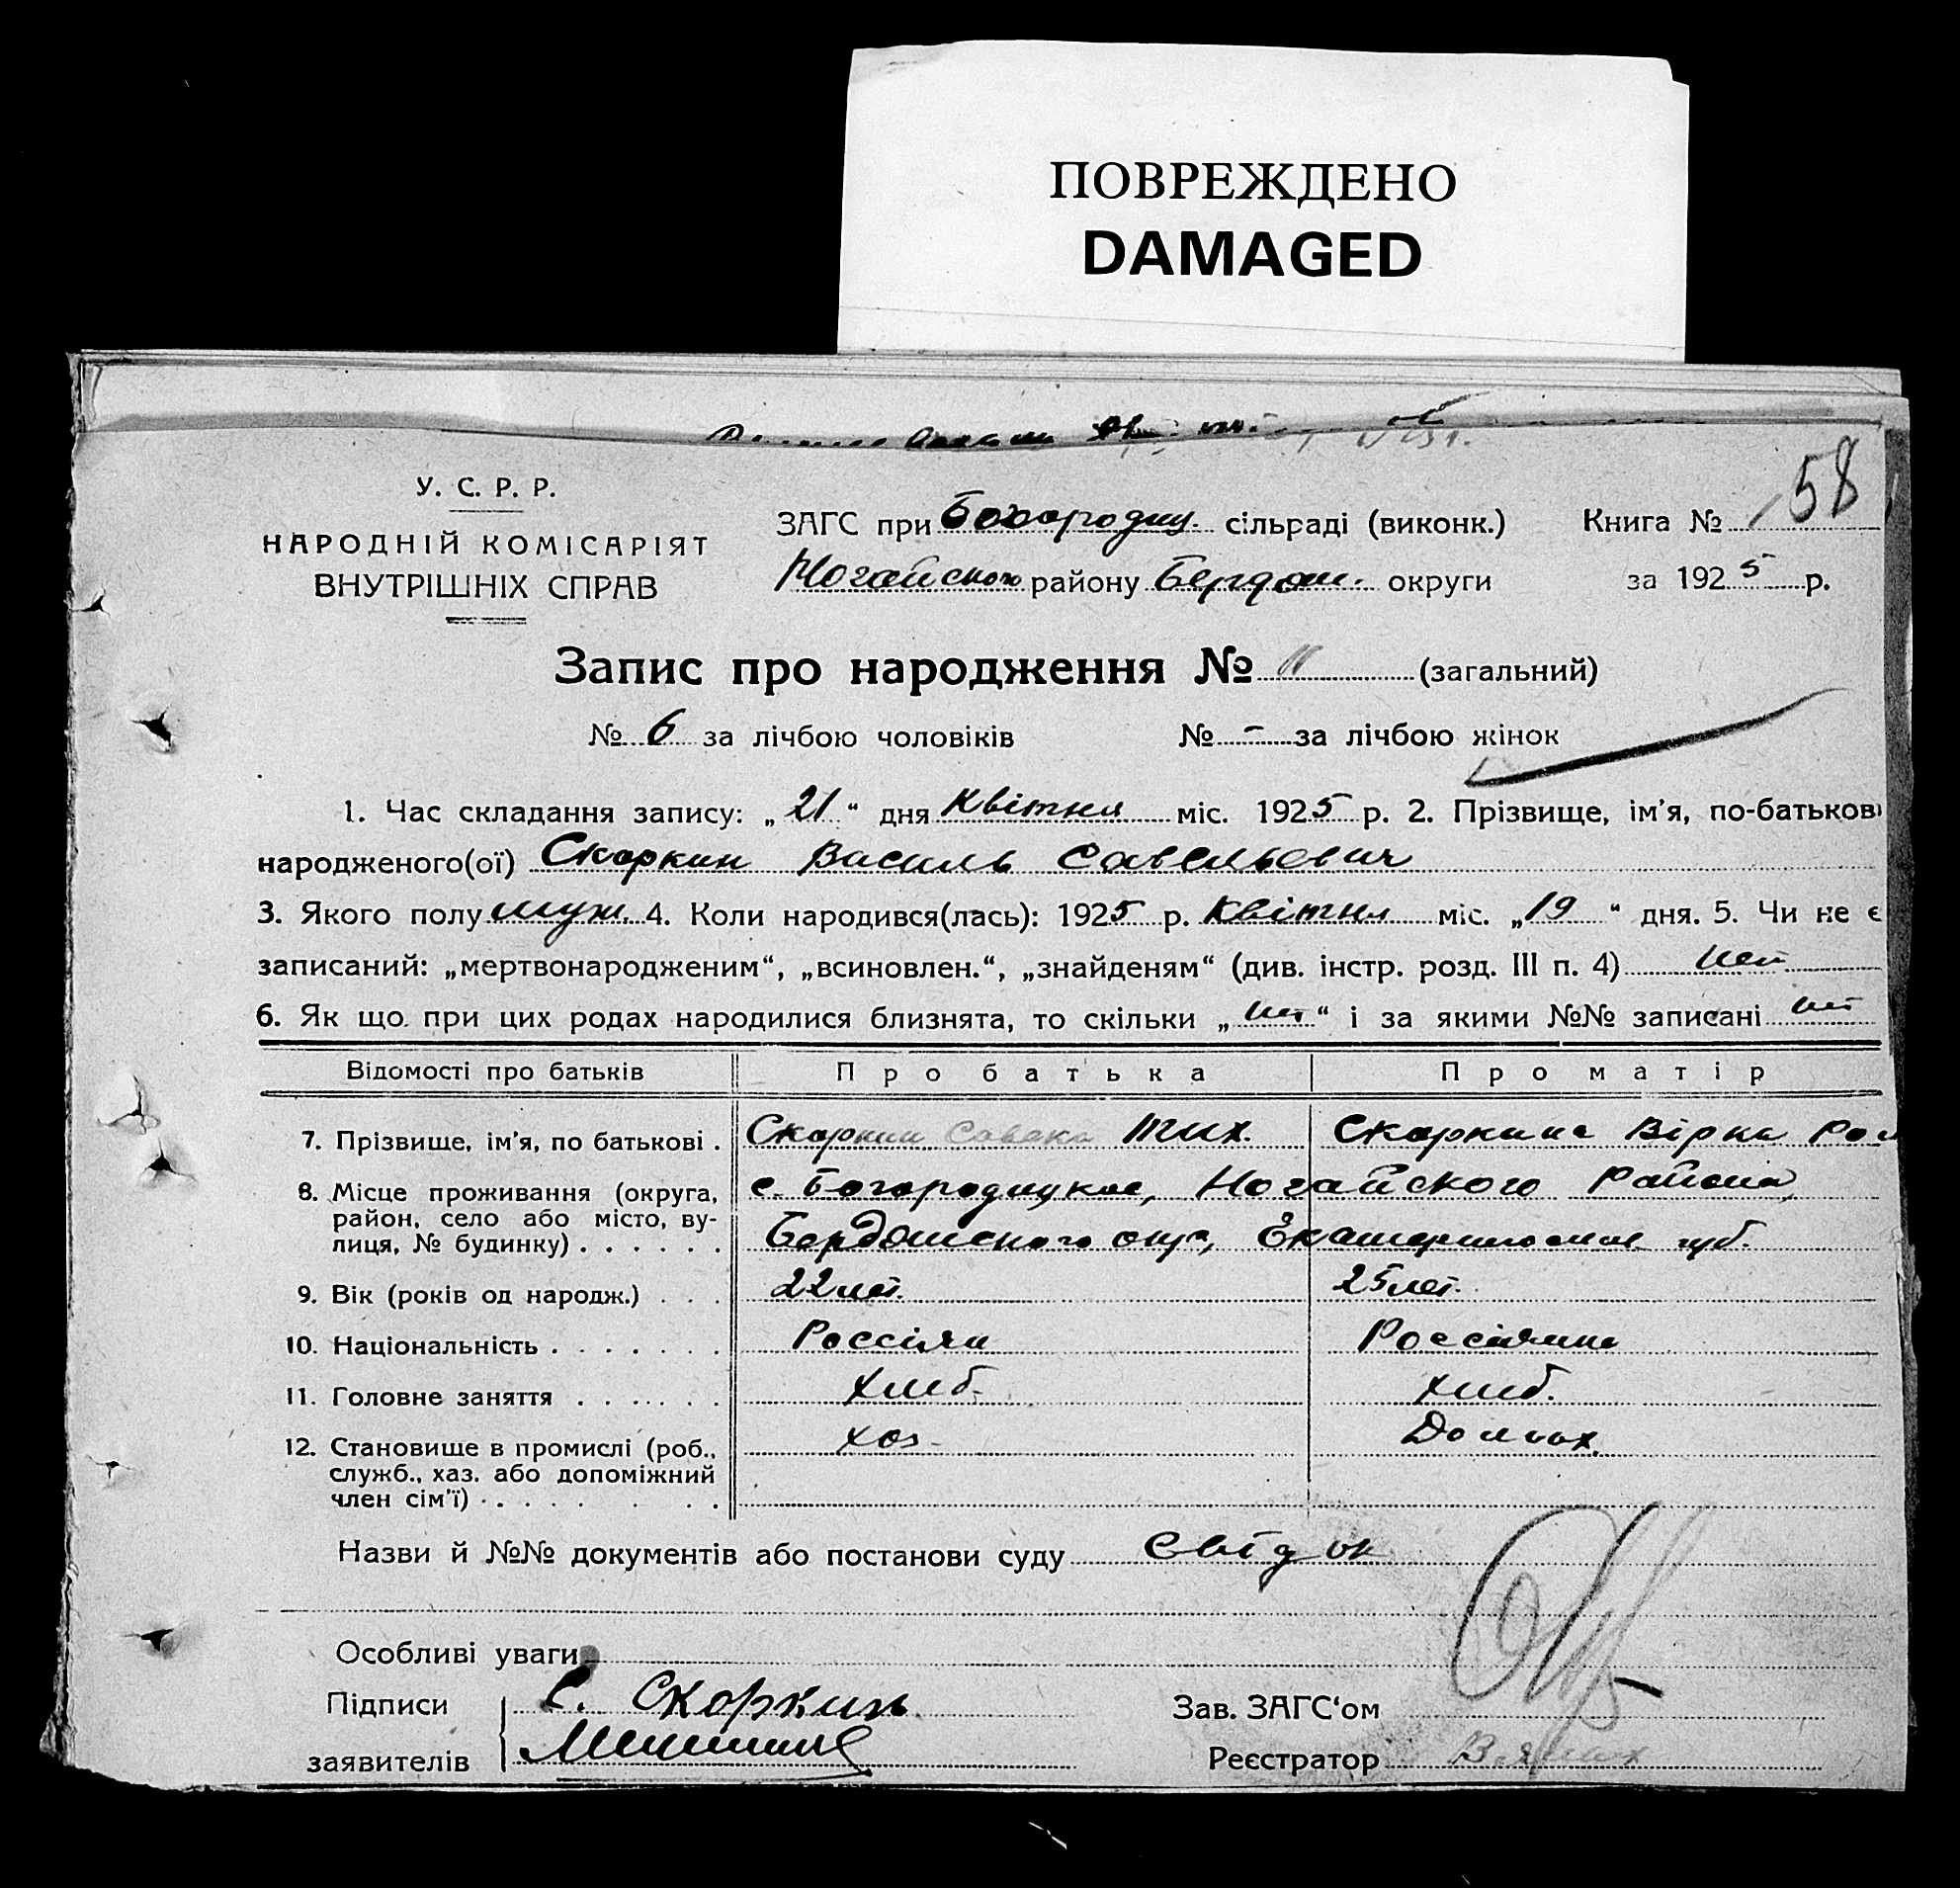 ПОВРЕЖДЕНО
DAMAGED
58
У. С. Р. Р.
НАРОДНІЙ КОМІСАРІЯТ
ВНУТРІШНІХ СПРАВ
ЗАГС при Богородиц. сільраді (виконк.) Книга №
Ногайского району Бердян. округи за 1925 р.
Запис про народження № 11 (загальний)
№ 6 за лічбою чоловіків № - за лічбою жінок
1. Час складання запису: „21“ дня Квітня міс. 1925 р. 2. Прізвище, ім'я, по-батькові
народженого(ої) Скоркин Василь Савельевич
3. Якого полу муж. 4. Коли народився(лась): 1925 р. Квітня міс. „19“ дня. 5. Чи не є
записаний: „мертвонародженим“, „всиновлен.“, „знайденям“ (див. інстр. розд. III п. 4) нет
6. Як що при цих родах народилися близнята, то скільки „нет“ і за якими №№ записані нет
Відомості про батьків Про батька Про матір
7. Прізвище, ім'я, по батькові . Скоркин Савека Тих. Скоркина Вірка Ром
8. Місце проживання (округа, район, село або місто, вулиця, № будинку) . . . . . . с. Богородицкое, Ногайского Района,
Бердянского окр, Екатеринослав. губ.
9. Вік (років од народж.) . . . 22 лет. 25 лет.
10. Національність . . . . . . . Россіян Россіянина
11. Головне заняття . . . . . . хліб. хліб.
12. Становище в промислі (роб., служб., хаз. або допоміжний член сім'ї) . . . . . . . хоз. Домох.
Назви й №№ документів або постанови суду Свідок
Особливі уваги
Підписи С. Скоркинъ Зав. ЗАГС'ом
заявителів Реєстратор